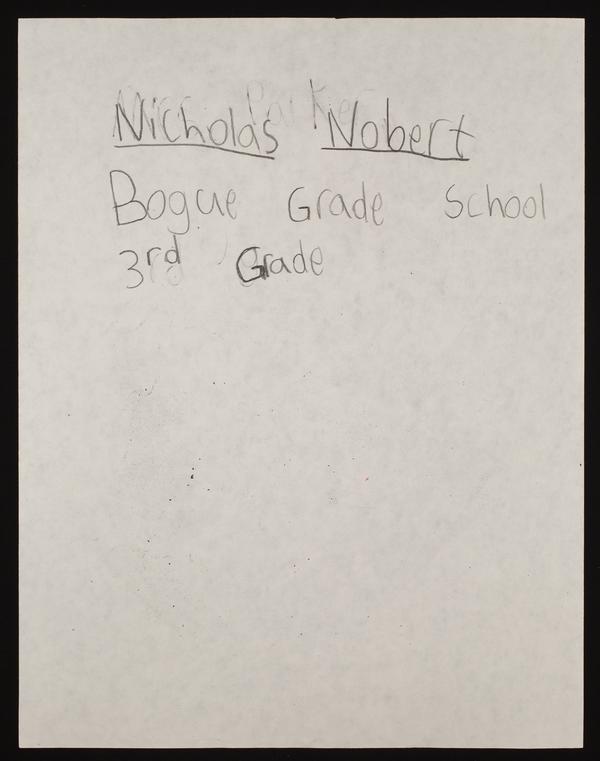 Nicholas Nobert
Bogue Grade School
3rd Grade